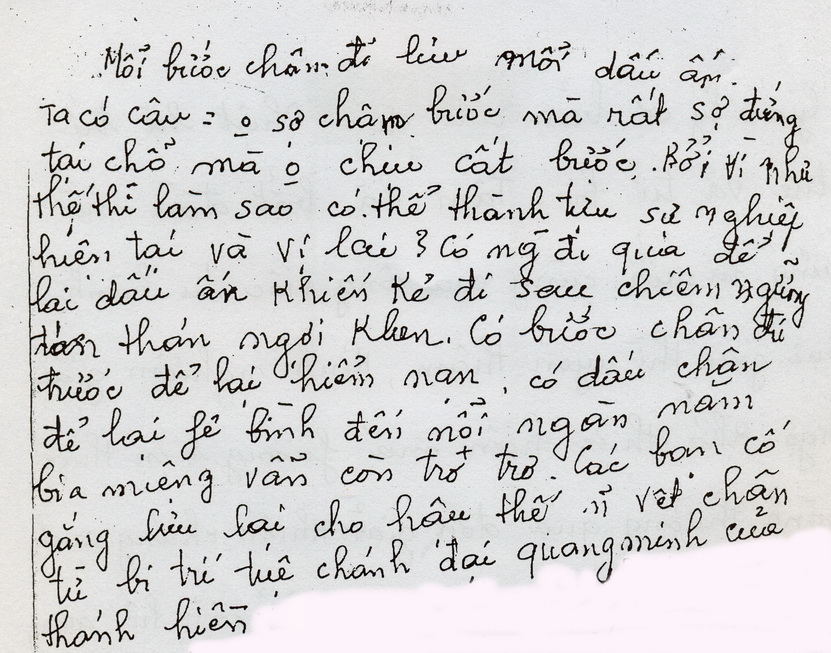 Mỗi bước chân đi lưu mỗi dấu ấn.
Ta có câu = o sợ chậm bước mà rất sợ đứng
tai chổ mà o chiu cất bước. Bởi vì như
thế thì làm sao có thể thành tưu sư nghiêp
hiên tai và vi lai ? Có ng đi qua để
lai dấu ấn khiến kẻ đi sau chiêm ngưỡng
tán thán ngơi khen. Có bước chân đi
trước để lai hiểm nan, có dấu chân
để lai fê bình đến nỗi ngàn năm
bia miêng vẫn còn trơ trơ. Các ban cố
gắng lưu lai cho hâu thế n vêt chân
từ bi trí tuê chánh đai quang minh của
thánh hiền